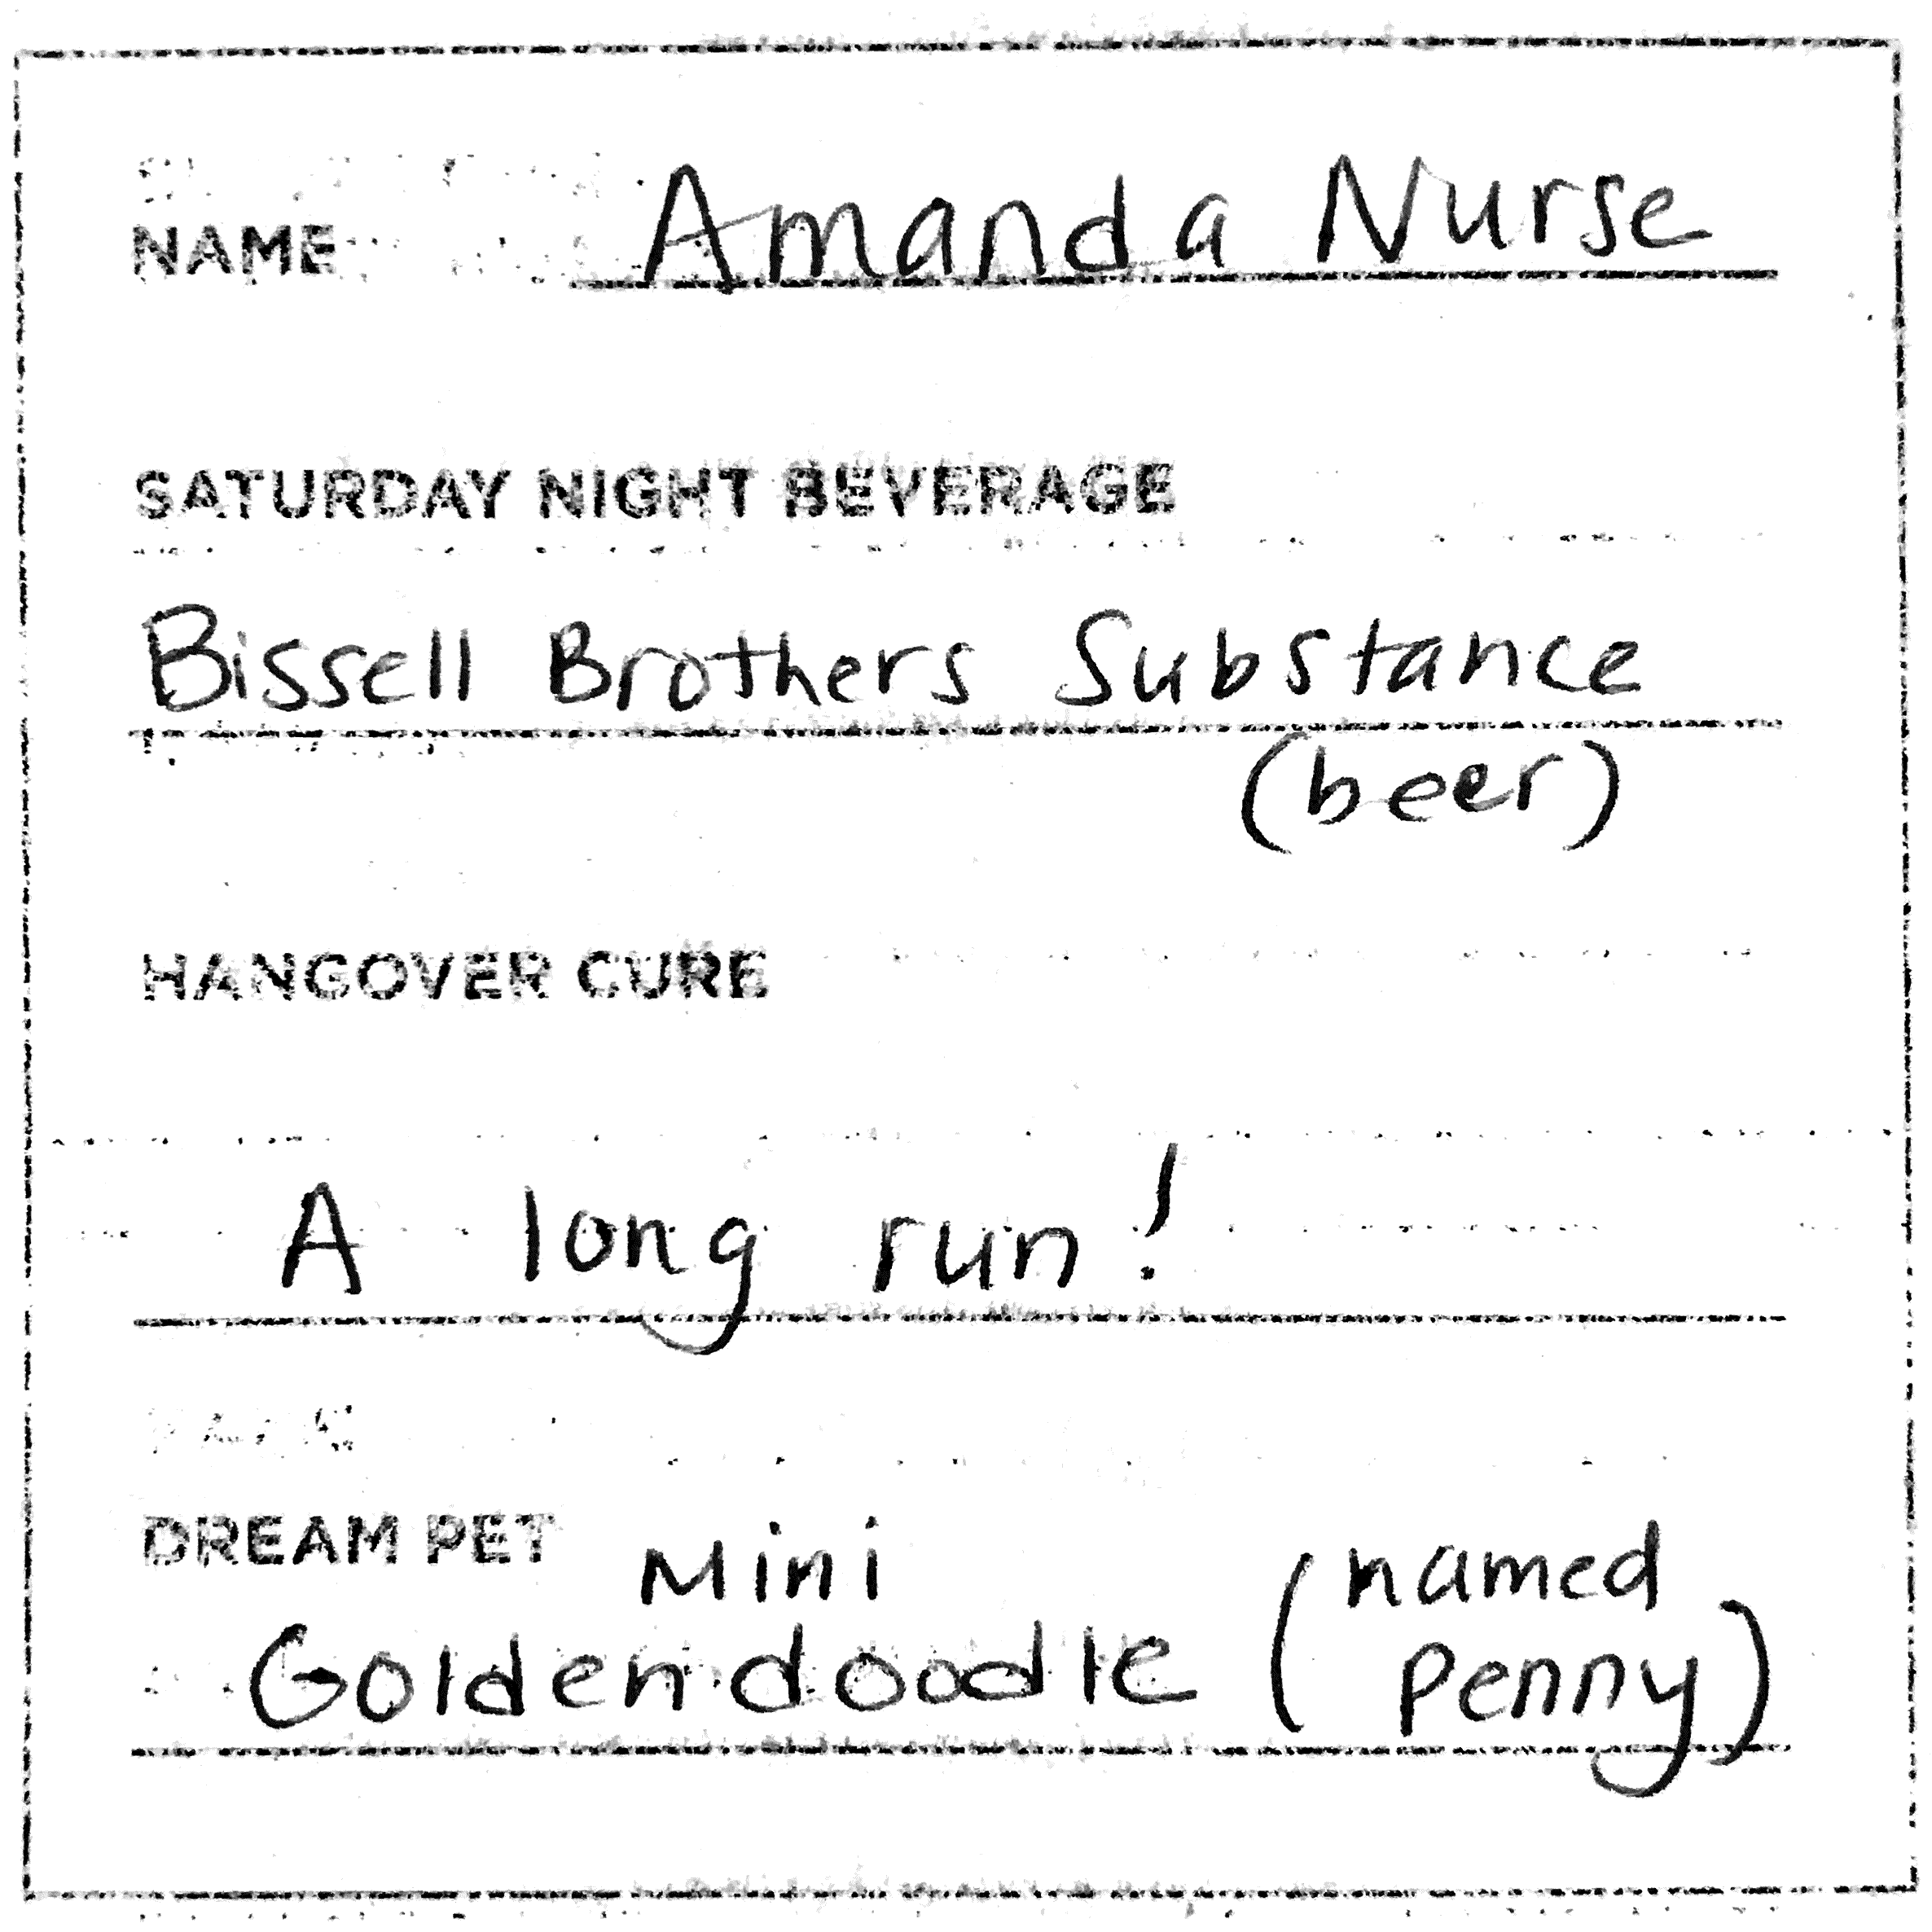 NAME Amanda Nurse
SATURDAY NIGHT BEVERAGE
Bissell Brothers Substance
(beer)
HANGOVER CURE
A long run!
DREAM PET Mini (named
Goldendoodle Penny)